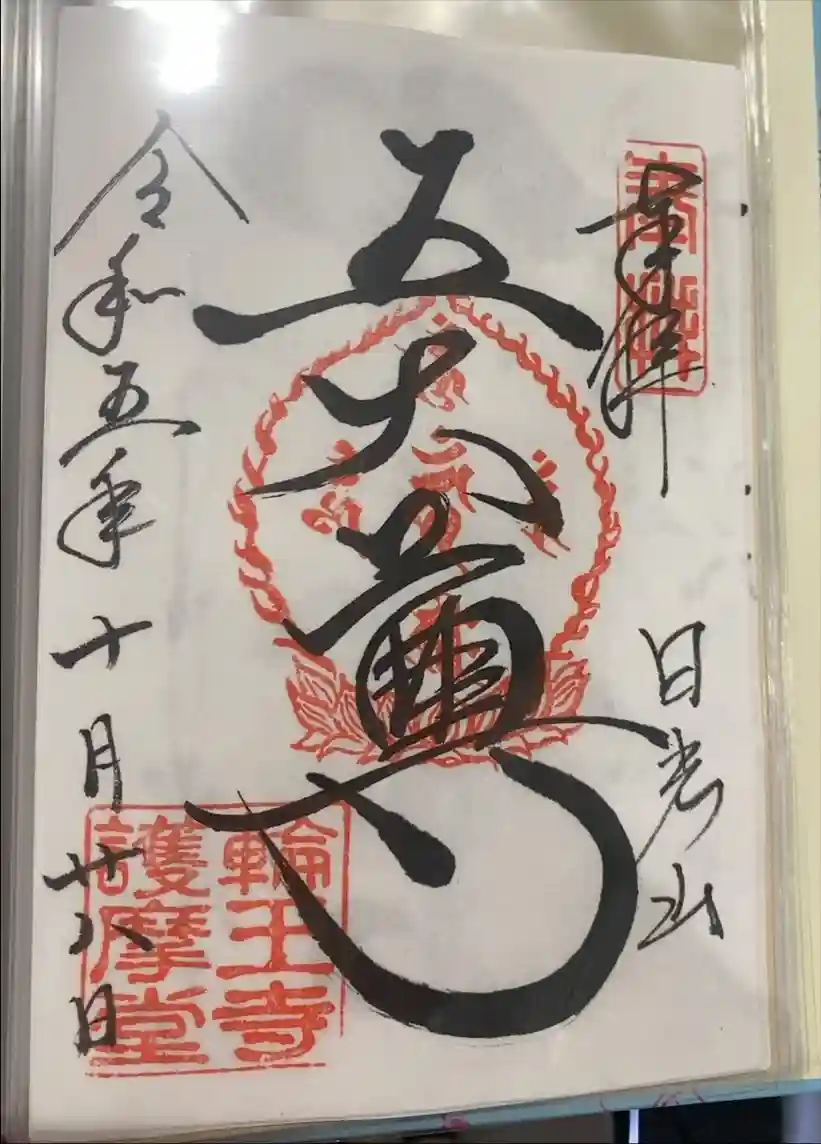 奉拝
奉拝
日光山
五大尊
令和五年十月廿八日
輪王寺
護摩堂